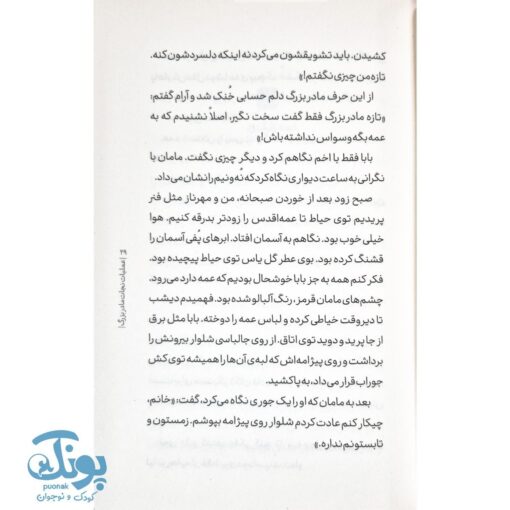 کشیدن. باید تشویقشون می‌کرد نه اینکه دلسردشون کنه.
تازه من چیزی نگفتم!»
از این حرف مادربزرگ دلم حسابی خُنک شد و آرام گفتم:
«تازه مادربزرگ فقط گفت سخت نگیر، اصلاً نشنیدم که به
عمه بگه وسواس نداشته باش!»
بابا فقط با اخم نگاهم کرد و دیگر چیزی نگفت. مامان با
نگرانی به ساعت دیواری نگاه کرد که نُه‌ونیم را نشان می‌داد.
صبح زود بعد از خوردن صبحانه، من و مهرناز مثل فنر
پریدیم توی حیاط تا عمه‌اقدس را زودتر بدرقه کنیم. هوا
خیلی خوب بود. نگاهم به آسمان افتاد. ابرهای پُفی آسمان را
قشنگ کرده بود. بوی عطر گل یاس توی حیاط پیچیده بود.
فکر کنم همه به جز بابا خوشحال بودیم که عمه دارد می‌رود.
چشم‌های مامان قرمز، رنگ آلبالو شده بود. فهمیدم دیشب
تا دیروقت خیاطی کرده و لباس عمه را دوخته. بابا مثل برق
از جا پرید و دوید توی اتاق. از روی جالباسی شلوار بیرونش را
برداشت و روی پیژامه‌اش که لبه‌ی آن‌ها را همیشه توی کش
جوراب قرار می‌داد، به پا کشید.
بعد به مامان که او را یک جوری نگاه می‌کرد، گفت: «خانم،
چیکار کنم عادت کردم شلوار روی پیژامه بپوشم. زمستون و
تابستونم نداره.»
| عملیات نجات مادربزرگ |
پونک
puonak
کودک و نوجوان